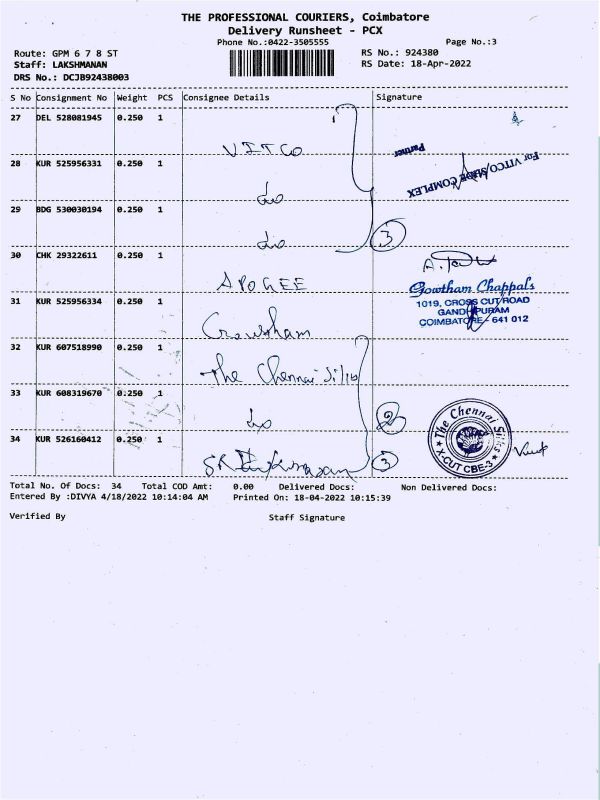 THE PROFESSIONAL COURIERS, Coimbatore
Delivery Runsheet - PCX
Phone No.:0422-3505555
Page No.:3
Route: GPM 6 7 8 ST
RS No.: 924380
Staff: LAKSHMANAN
RS Date: 18-Apr-2022
DRS No.: DCJB92438003
S No Consignment No Weight PCS Consignee Details Signature
27 DEL 528081945 0.250 1
VITCO
Partner
For VITCO/SHOE COMPLEX
28 KUR 525956331 0.250 1
do
29 BDG 530030194 0.250 1
do
3
30 CHK 29322611 0.250 1
APOGEE
Gowtham Chappals
31 KUR 525956334 0.250 1
1019, CROSS CUT ROAD
GANDHIPURAM
COIMBATORE - 641 012
Gowtham
32 KUR 607518990 0.250 1
The Chennai Silks
33 KUR 608319670 0.250 1
do
2
The Chennai Silks
X-CUT CBE-3
34 KUR 526160412 0.250 1
3
Total No. Of Docs: 34 Total COD Amt: 0.00 Delivered Docs: Non Delivered Docs:
Entered By :DIVYA 4/18/2022 10:14:04 AM Printed On: 18-04-2022 10:15:39
Verified By Staff Signature